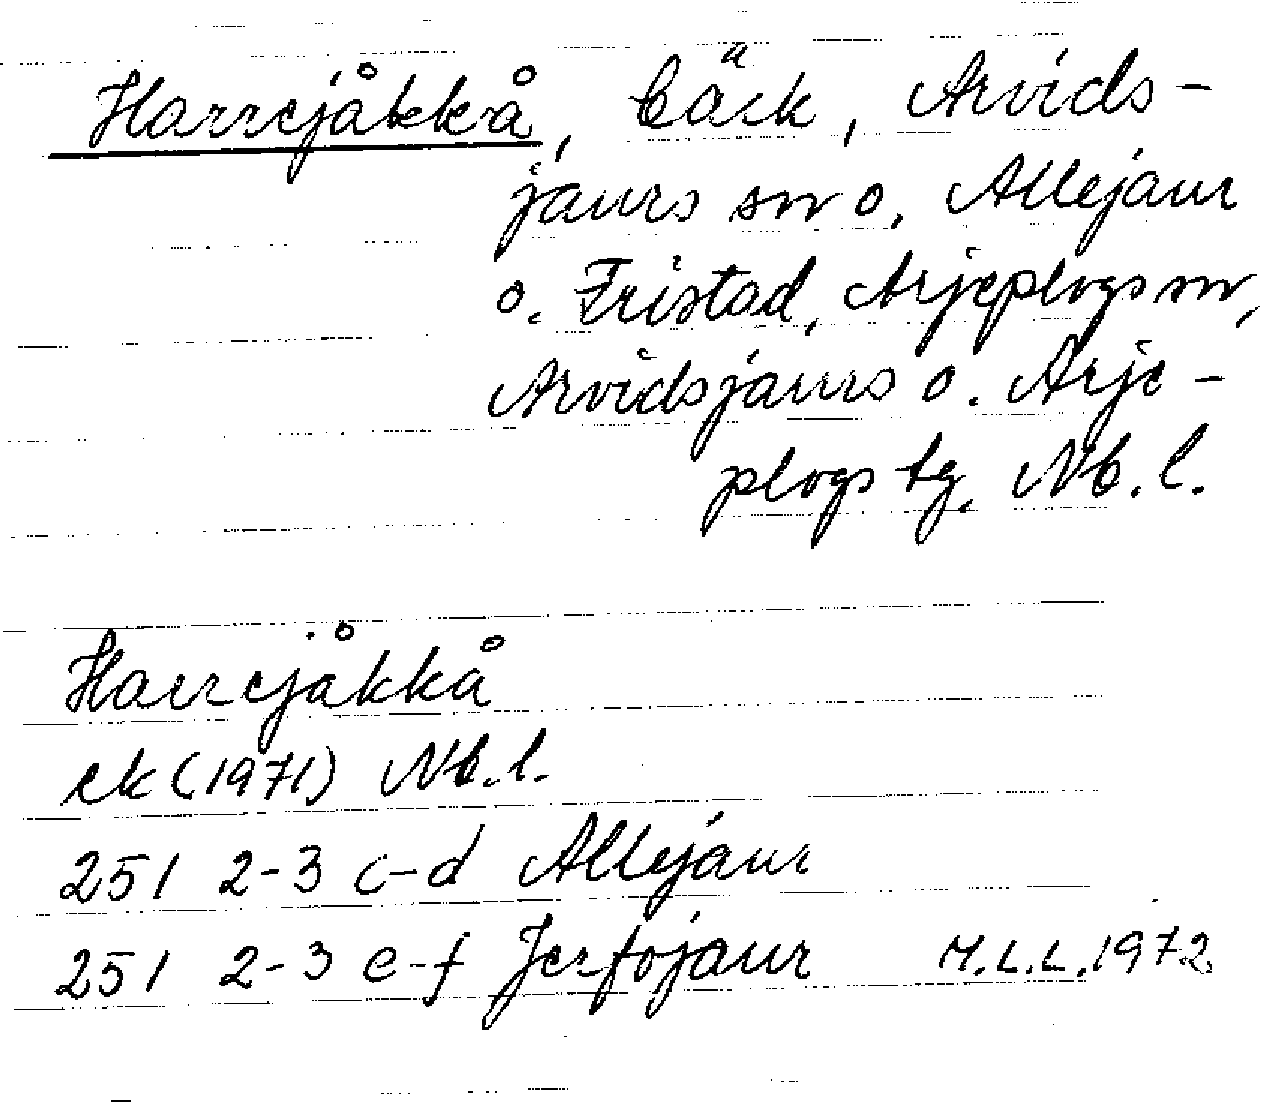 Harrejåkkå, bäck, Arvids-
jaurs sn o. Allejaur
o. Fristad, Arjeplogs sn,
Arvidsjaurs o. Arje-
plogs tg, Nb. l.
Harrejåkkå
ek (1971) Nb. l.
251 2-3 c-d Allejaur
251 2-3 e-f Jerfojaur M.L.L. 1972